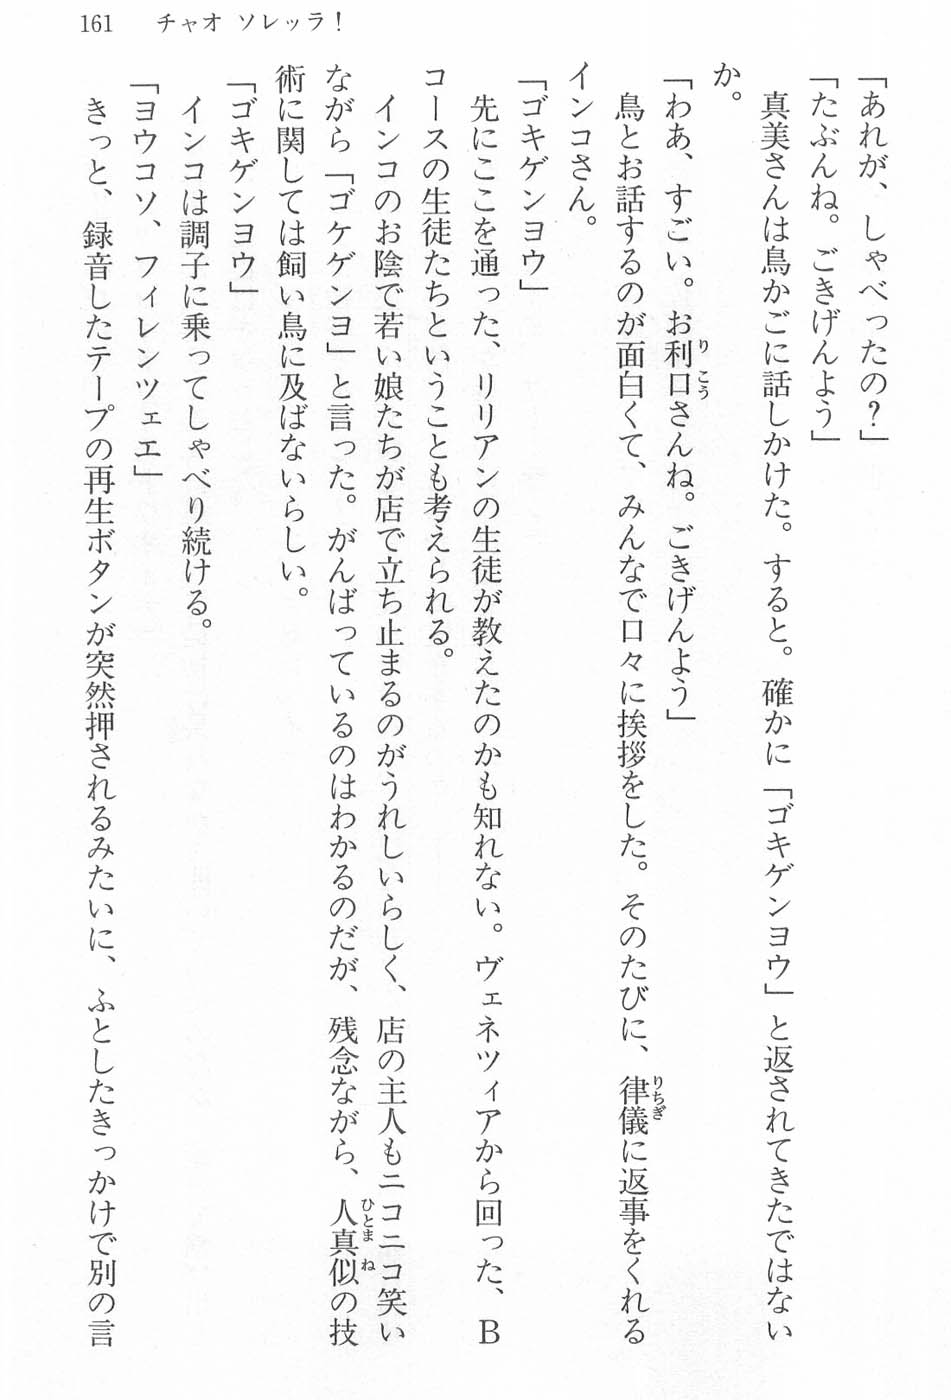 161　チャオ ソレッラ！
「あれが、しゃべったの？」
「たぶんね。ごきげんよう」
　真美さんは鳥かごに話しかけた。すると。確かに「ゴキゲンヨウ」と返されてきたではない
か。
「わあ、すごい。お利口さんね。ごきげんよう」
　鳥とお話するのが面白くて、みんなで口々に挨拶をした。そのたびに、律儀に返事をくれる
インコさん。
「ゴキゲンヨウ」
　先にここを通った、リリアンの生徒が教えたのかも知れない。ヴェネツィアから回った、B
コースの生徒たちということも考えられる。
　インコのお陰で若い娘たちが店で立ち止まるのがうれしいらしく、店の主人もニコニコ笑い
ながら「ゴケゲンヨ」と言った。がんばっているのはわかるのだが、残念ながら、人真似の技
術に関しては飼い鳥に及ばないらしい。
「ゴキゲンヨウ」
　インコは調子に乗ってしゃべり続ける。
「ヨウコソ、フィレンツェエ」
　きっと、録音したテープの再生ボタンが突然押されるみたいに、ふとしたきっかけで別の言